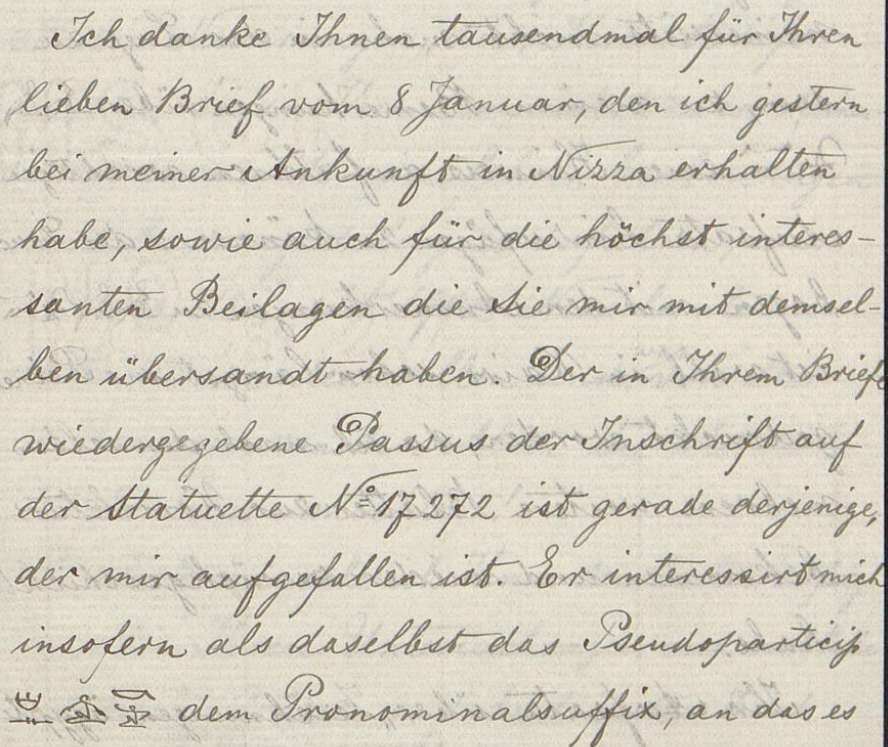 Ich danke Ihnen tausendmal für Ihren
lieben Brief vom 8 Januar, den ich gestern
bei meiner Ankunft in Nizza erhalten
habe, sowie auch für die höchst interes-
santen Beilagen die Sie mir mit demsel-
ben übersandt haben. Der in Ihrem Briefe
wiedergegebene Passus der Inschrift auf
der Statuette Nº 17272 ist gerade derjenige,
der mir aufgefallen ist. Er interessirt mich
insofern als daselbst das Pseudoparticip
dem Pronominalsuffix, an das es